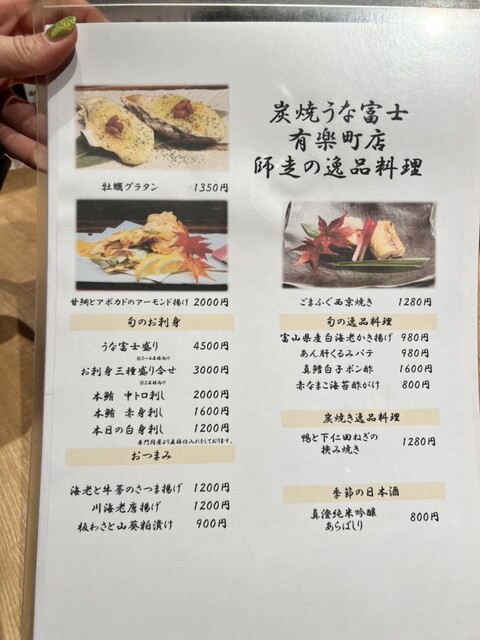 炭焼うな富士
有楽町店
師走の逸品料理
牡蠣グラタン 1350円
甘鯛とアボカドのアーモンド揚げ 2000円
旬のお刺身
うな富士盛り 4500円
※3~4名様向け
お刺身三種盛り合せ 3000円
※2名様向け
本鮪 中トロ刺し 2000円
本鮪 赤身刺し 1600円
本日の白身刺し 1200円
専門問屋より直接仕入れをしております。
おつまみ
海老と牛蒡のさつま揚げ 1200円
川海老唐揚げ 1200円
板わさと山葵粕漬け 900円
ごまふぐ西京焼き 1280円
旬の逸品料理
富山県産白海老かき揚げ 980円
あん肝くるみパテ 980円
真鱈白子ポン酢 1600円
赤なまこ海苔酢がけ 800円
炭焼き逸品料理
鴨と下仁田ねぎの
挟み焼き 1280円
季節の日本酒
真澄純米吟醸
あらばしり 800円